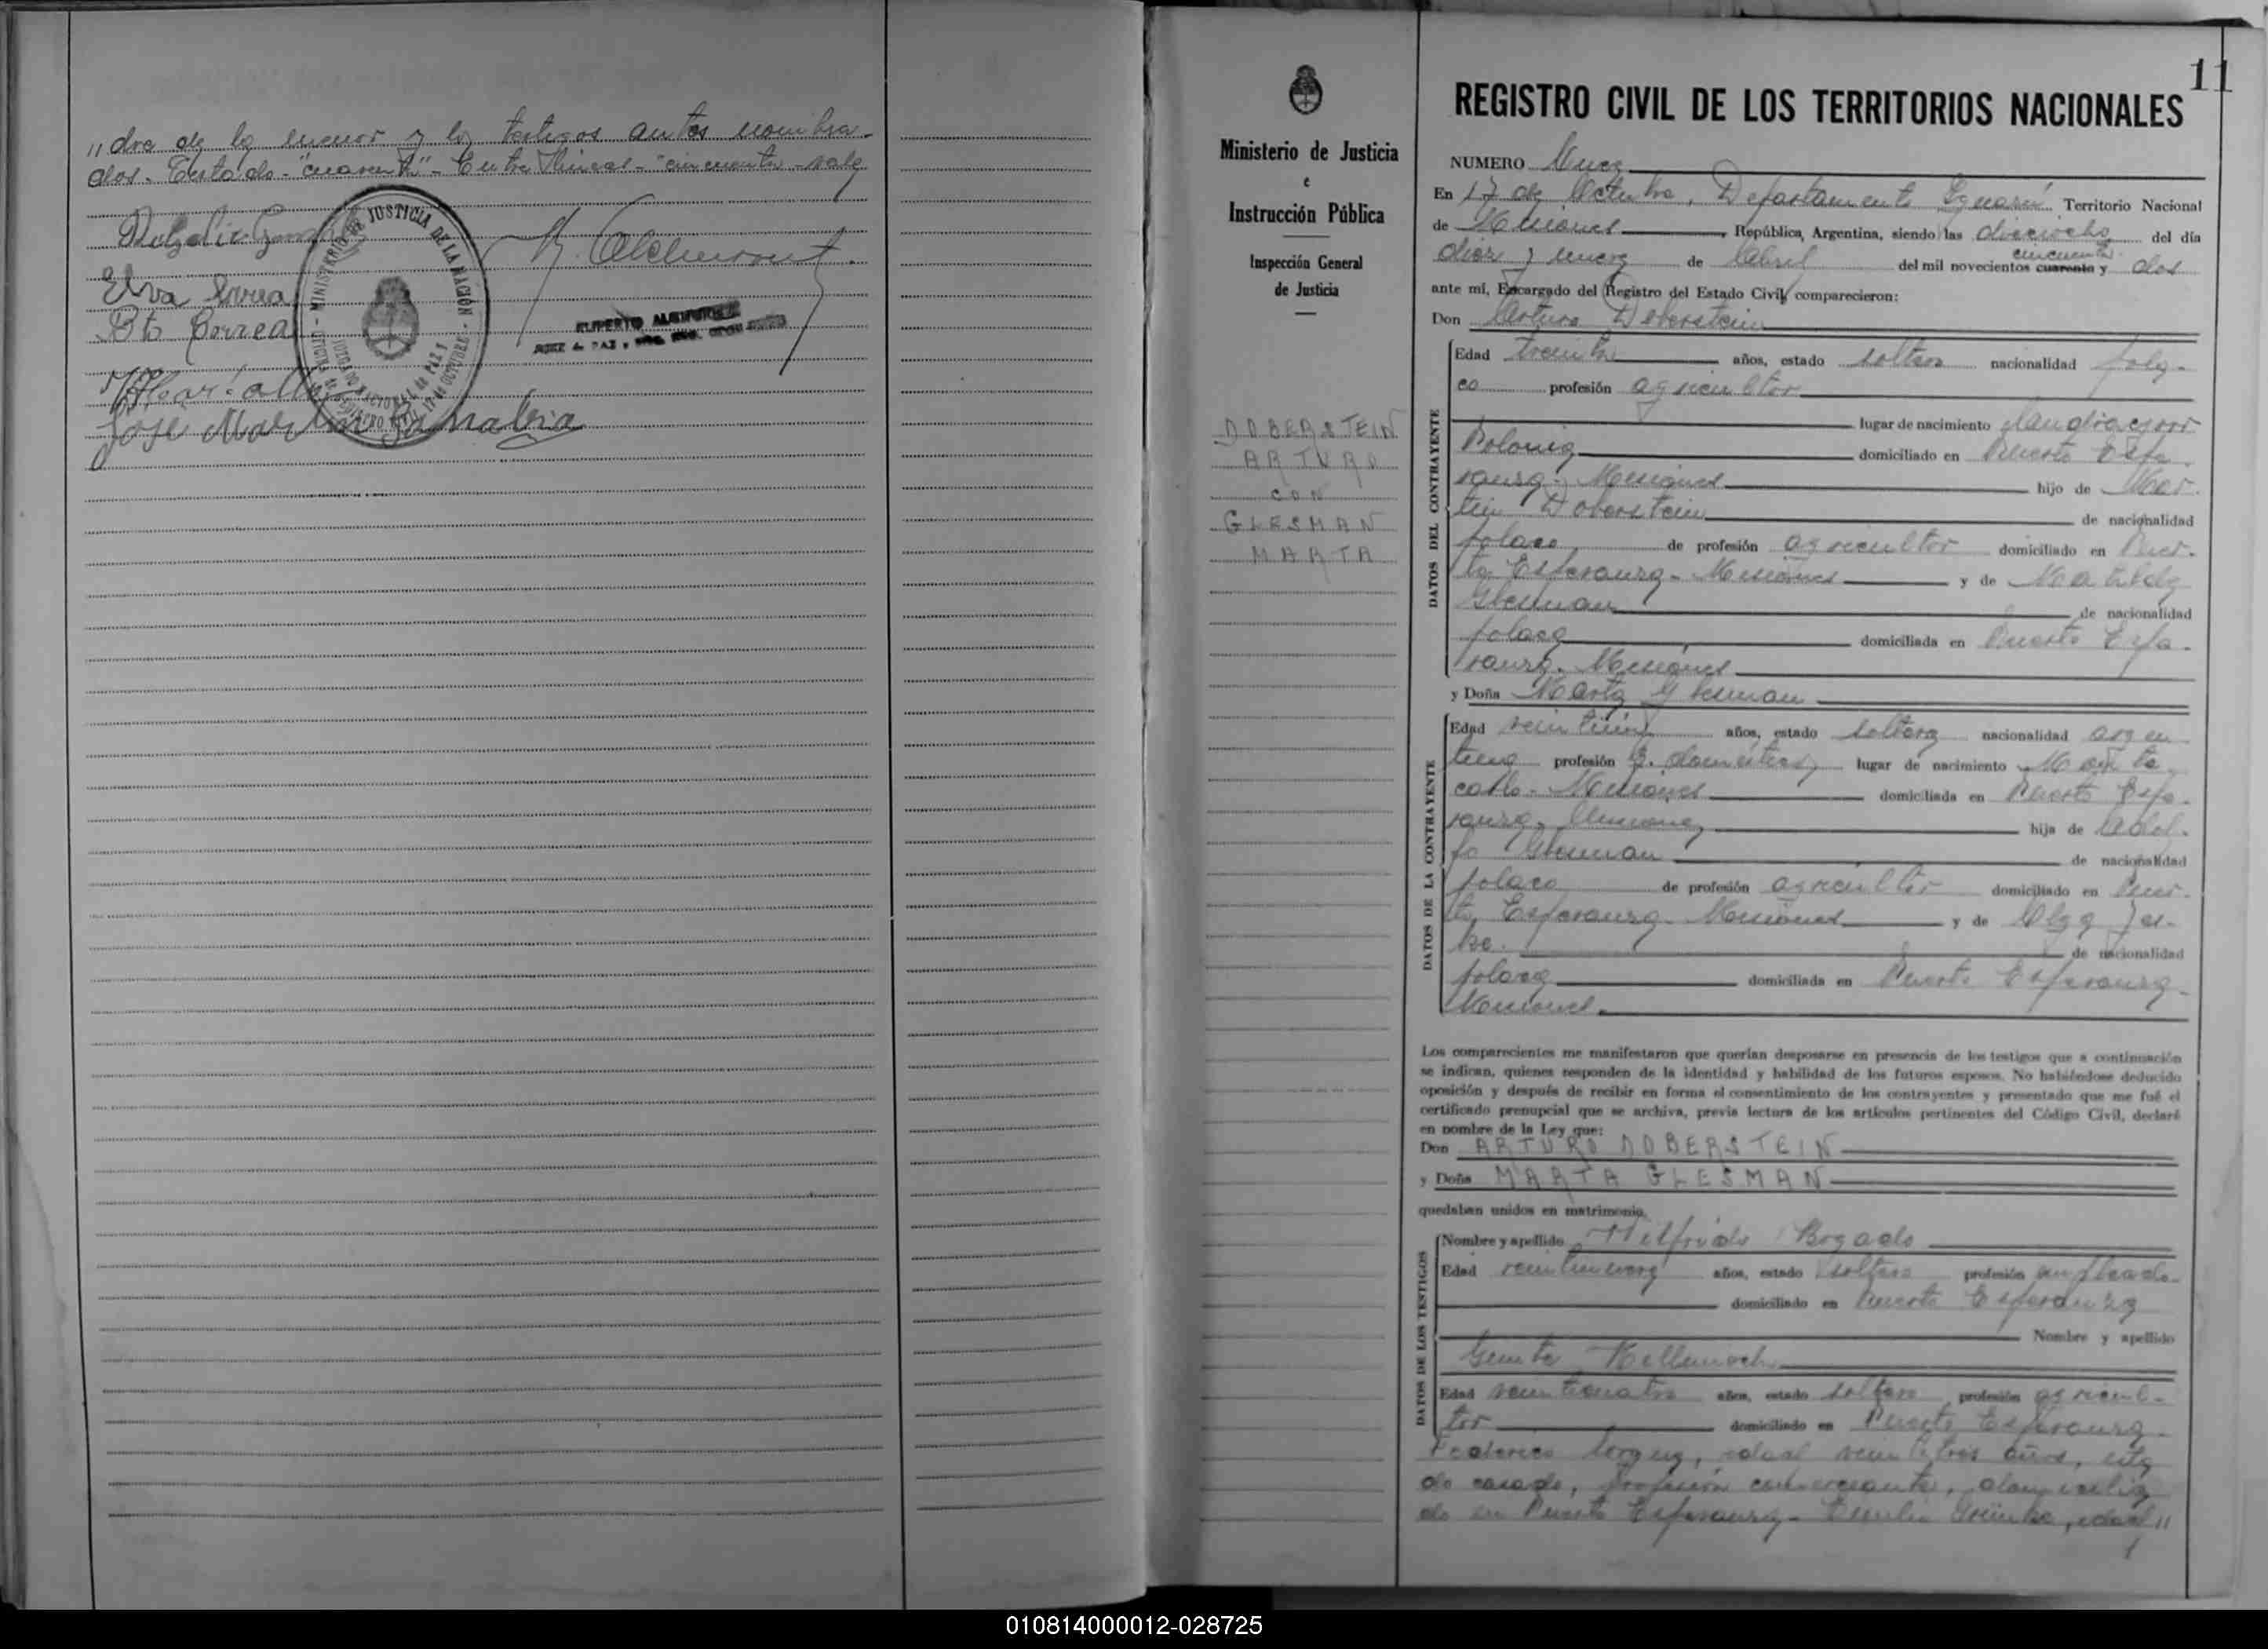 „dre de la menor y los testigos antes nombra-
dos. Testado - "cuarenta" - Entre líneas - "cincuenta - vale
Elva Correa
Bto Correa
José Martín Sanabria
MINISTERIO DE JUSTICIA DE LA NACION
11
Ministerio de Justicia
e
Instrucción Pública
Inspección General
de Justicia
DOBERSTEIN
ARTURO
CON
GLESMAN
MARTA
REGISTRO CIVIL DE LOS TERRITORIOS NACIONALES
NUMERO Nueve
En 17 de Octubre, Departamento Iguazú Territorio Nacional
de Misiones República Argentina, siendo las dieciocho del día
cincuenta
diez y nueve de Abril del mil novecientos cuarenta y dos
ante mí, Encargado del Registro del Estado Civil, comparecieron:
Don Arturo Doberstein
DATOS DEL CONTRAYENTE
Edad treinta años, estado soltero nacionalidad pola-
co profesión agricultor
lugar de nacimiento
Polonia domiciliado en Puerto Espe-
ranza. Misiones hijo de Mar-
tin Doberstein de nacionalidad
polaco de profesión agricultor domiciliado en Puer-
to Esperanza. Misiones y de Matilde
Glesman de nacionalidad
polaca domiciliada en Puerto Espe-
ranza. Misiones
y Doña Marta Glesman
DATOS DE LA CONTRAYENTE
Edad años, estado soltera nacionalidad argen
tina profesión Q. domésticos lugar de nacimiento Monte
carlo. Misiones domiciliada en Puerto Espe-
ranza. Misiones hija de Adol-
fo Glesman de nacionalidad
polaco de profesión agricultor domiciliado en Puer-
to Esperanza. Misiones y de Olga
de nacionalidad
polaca domiciliada en Puerto Esperanza-
Misiones.
Los comparecientes me manifestaron que querían desposarse en presencia de los testigos que a continuación
se indican, quienes responden de la identidad y habilidad de los futuros esposos. No habiéndose deducido
oposición y después de recibir en forma el consentimiento de los contrayentes y presentado que me fué el
certificado prenupcial que se archiva, previa lectura de los artículos pertinentes del Código Civil, declaré
en nombre de la Ley que:
Don ARTURO DOBERSTEIN
y Doña MARTA GLESMAN
quedaban unidos en matrimonio.
DATOS DE LOS TESTIGOS
Nombre y apellido Wilfrido Bogado
Edad veintinueve años, estado soltero profesión empleado
domiciliado en Puerto Esperanza
Nombre y apellido
Edad veinticuatro años, estado soltero profesión agricul-
tor domiciliado en Puerto Esperanza-
Federico edad veintitres años, esta
do casado, profesión comerciante, domicilia
do en Puerto Esperanza - Emilio edad „
010814000012-028725